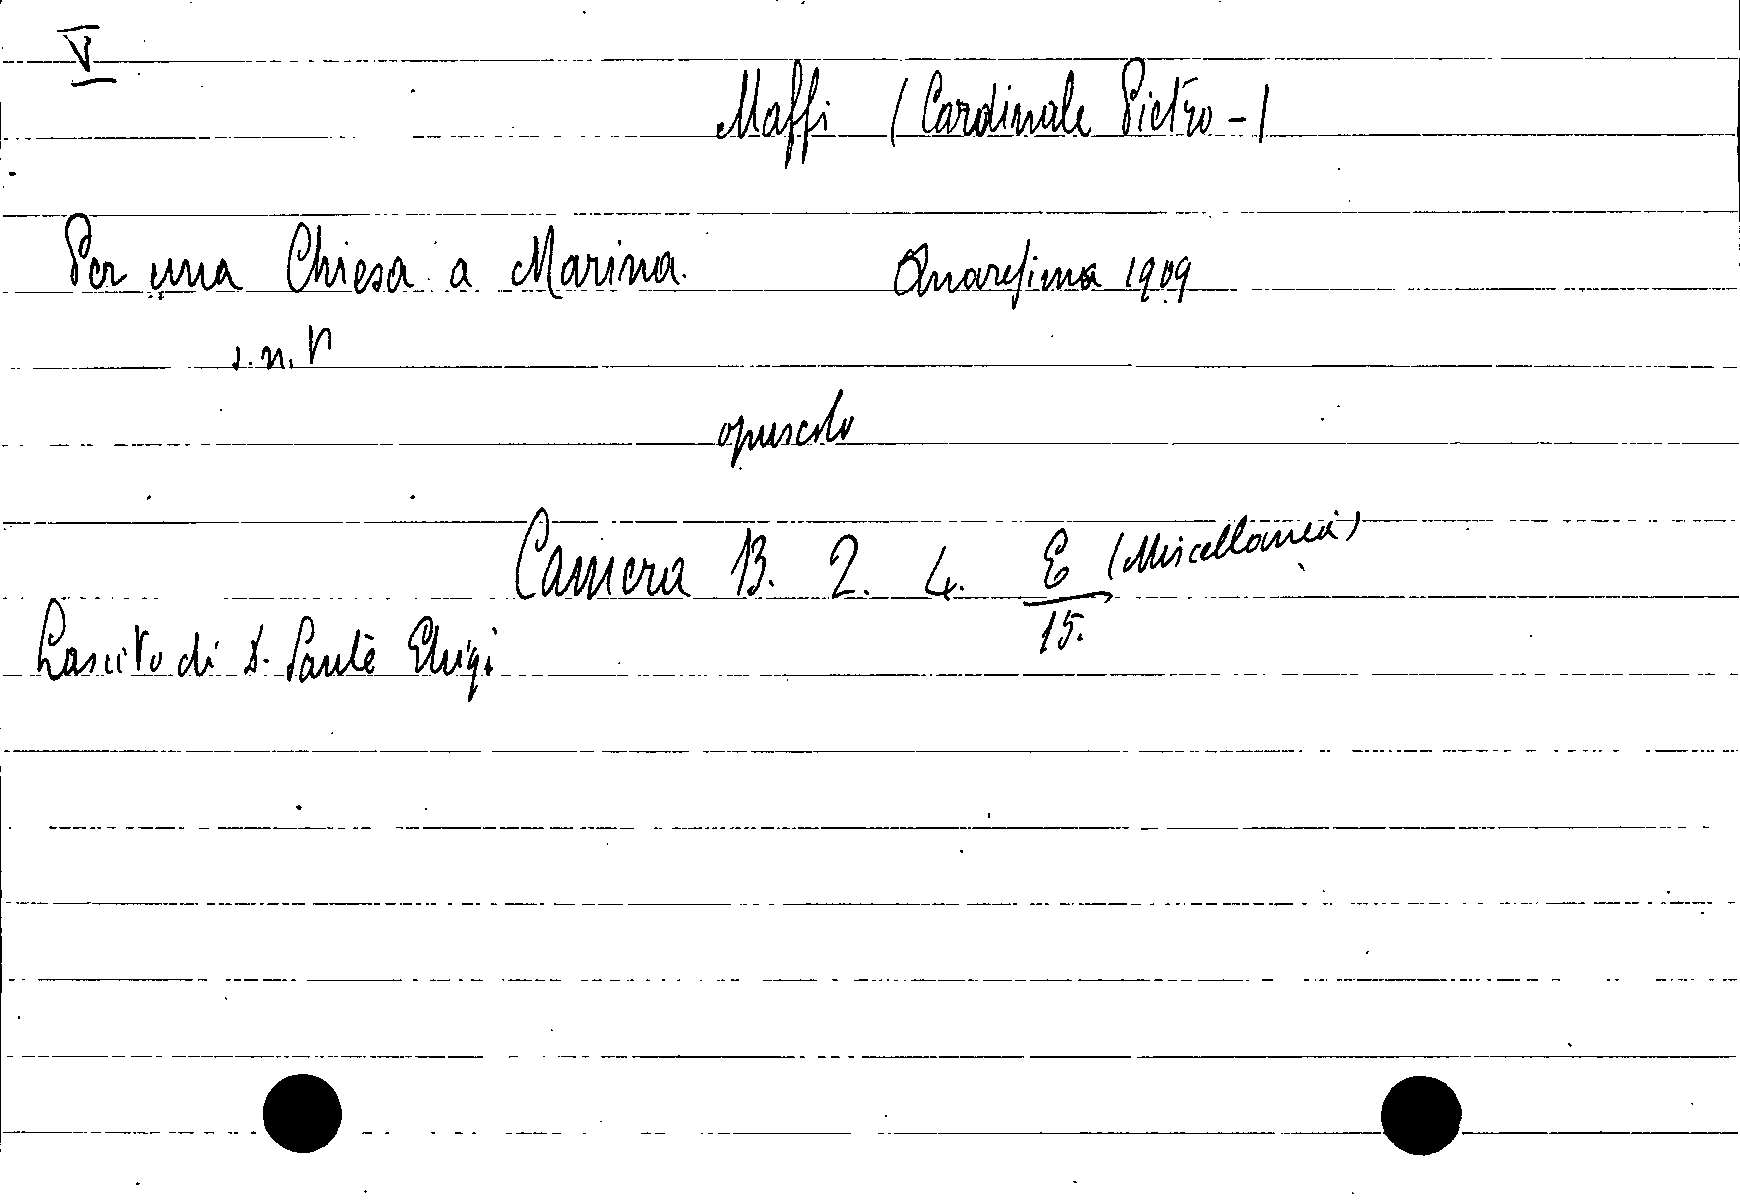 V
Maffi (Cardinale Pietro -)
Per una Chiesa a Marina. Quaresima 1909
s.n.t
opuscolo
Camera 13. 2. 4. E (Miscellanea)
15.
Lascito di D. Sante